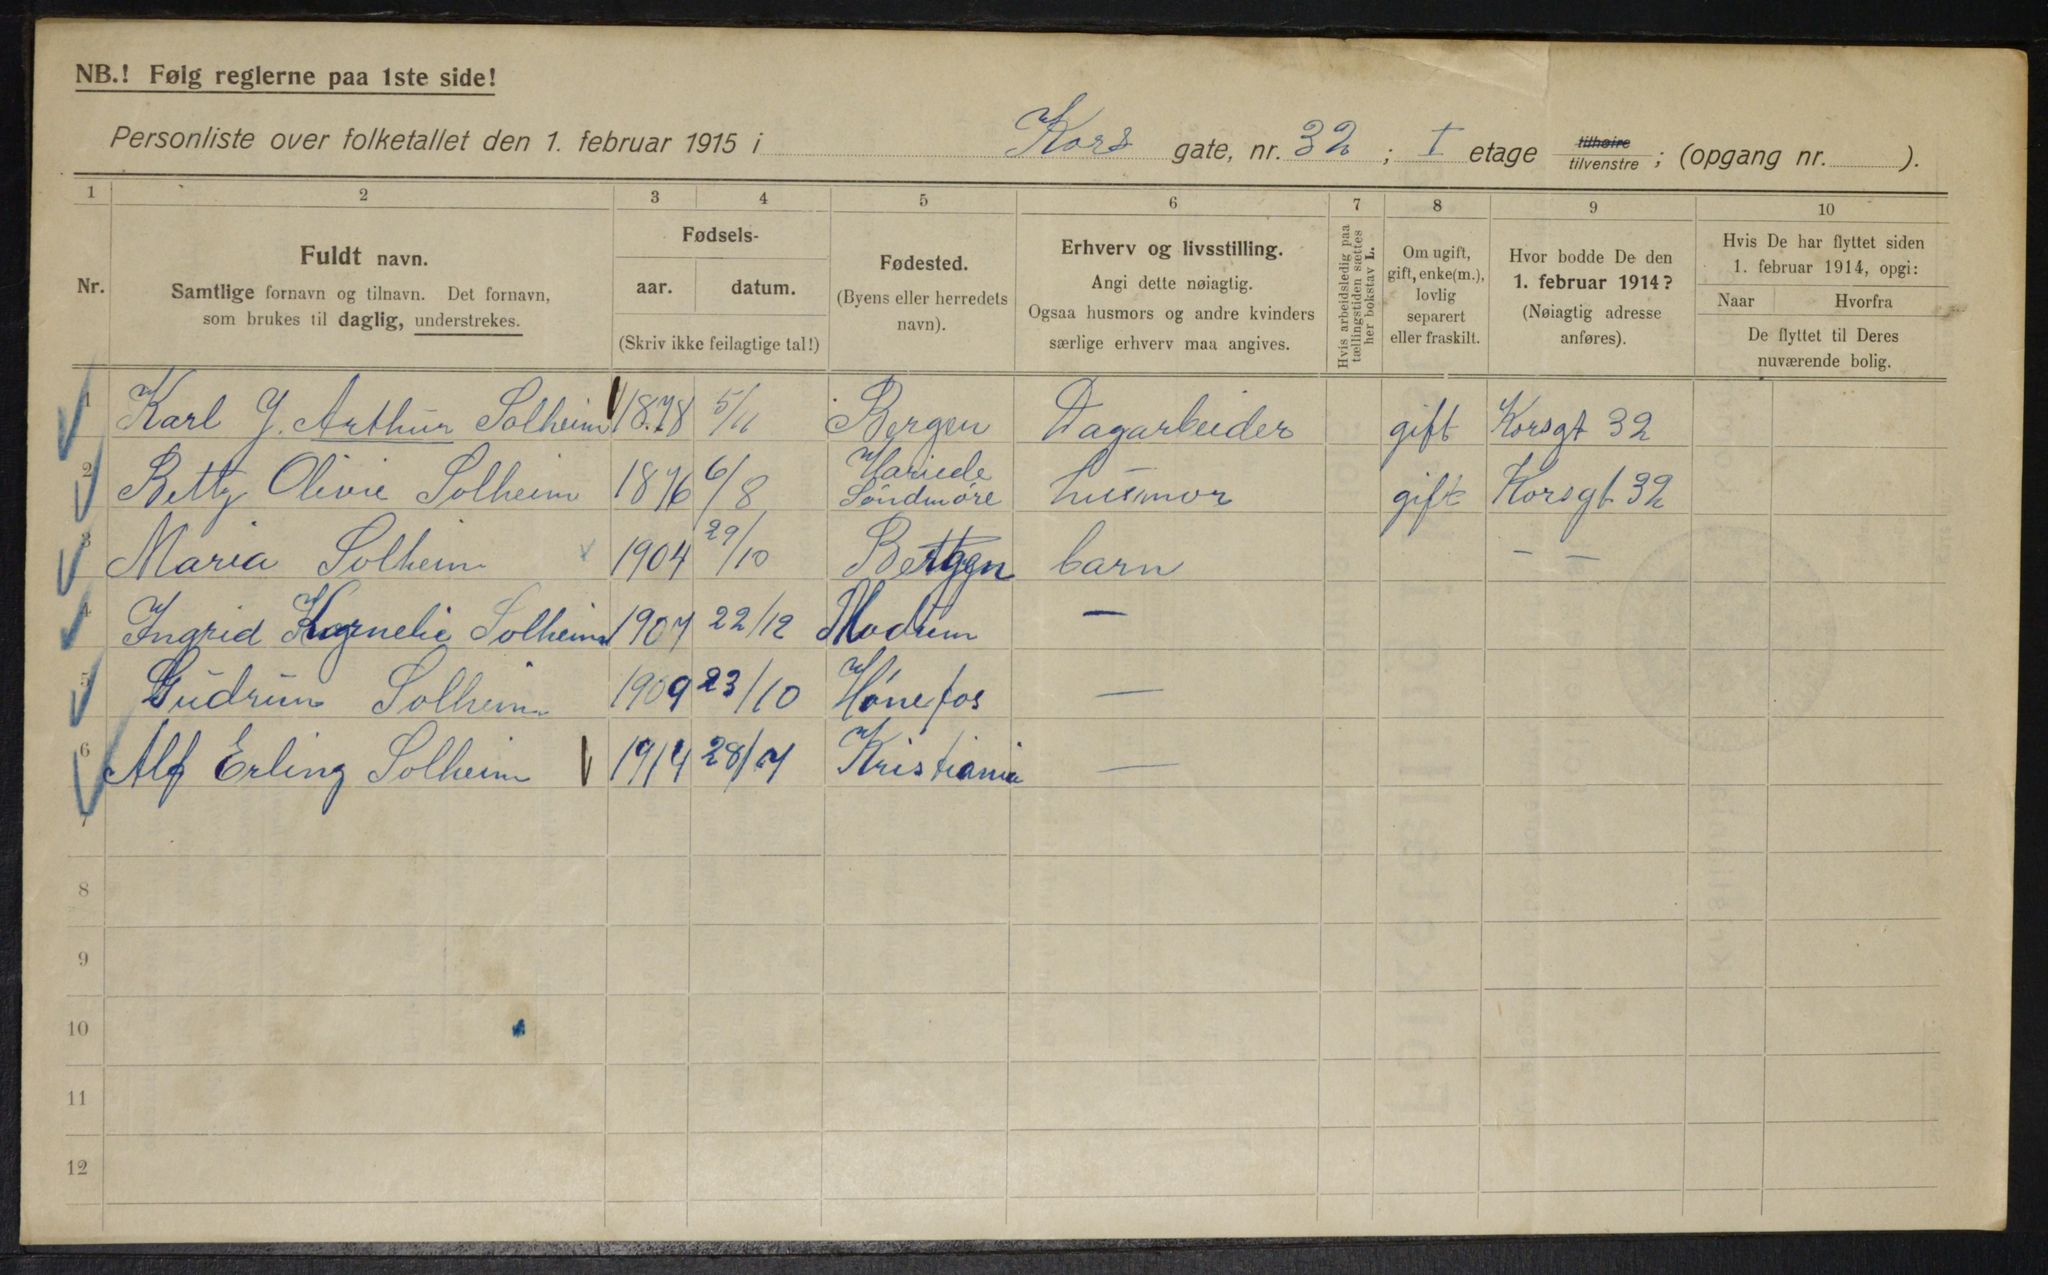 NB.! Følg reglerne paa 1ste side!
Personliste over folketallet den 1. februar 1915 i Kors gate, nr. 32 ; I etage tilhøire tilvenstre ; (opgang nr. ).
1 2 3 4 5 6 7 8 9 10
Nr.
Fuldt navn.
Samtlige fornavn og tilnavn. Det fornavn,
som brukes til daglig, understrekes.
Fødsels-
aar. datum.
(Skriv ikke feilagtige tal!)
Fødested.
(Byens eller herredets
navn).
Erhverv og livsstilling.
Angi dette nøiagtig.
Ogsaa husmors og andre kvinders
særlige erhverv maa angives.
Hvis arbeidsledig paa
tællingstiden sættes
her bokstav L.
Om ugift,
gift, enke(m.),
lovlig
separert
eller fraskilt.
Hvor bodde De den
1. februar 1914?
(Nøiagtig adresse
anføres).
Hvis De har flyttet siden
1. februar 1914, opgi:
Naar Hvorfra
De flyttet til Deres
nuværende bolig.
1 Karl J. Arthur Solheim 1878 5/11 Bergen Dagarbeider gift Korsgt 32
2 Betty Olivie Solheim 1876 6/8 Søndmøre husmor gift Korsgt 32
3 Maria Solheim 1904 29/10 Bergen barn — —
4 Ingrid Kornelie Solheim 1907 22/12 Modum —
5 Gudrun Solheim 1909 23/10 Hønefos —
6 Alf Erling Solheim 1914 28/7 Kristiania —
7
8
9
10
11
12